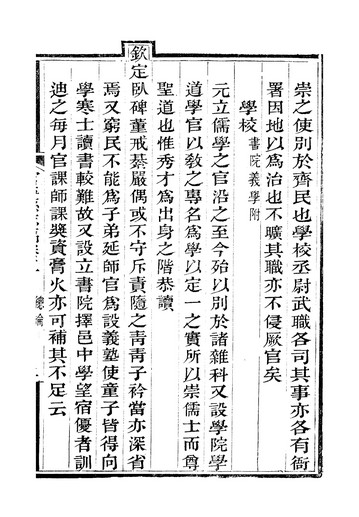 崇之使別於齊民也學校丞尉武職各司其事亦各有衙
署因地以爲治也不曠其職亦不侵厥官矣
學校書院義學附
元立儒學之官沿之至今殆以別於諸雜科又設學院學
道學官以敎之專名爲學以定一之實所以崇儒士而尊
聖道也惟秀才爲出身之階恭讀
欽定臥碑董戒綦嚴偶或不守斥責隨之靑靑子衿當亦深省
焉又窮民不能爲子弟延師官爲設義塾使童子皆得向
學寒士讀書較難故又設立書院擇邑中學望宿優者訓
迪之每月官課師課獎資膏火亦可補其不足云
總論